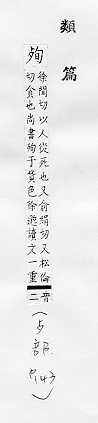 類篇
殉
徐閏切以人從死也又俞絹切又松倫
切貪也尚書殉于貨色徐邈讀文一重
音
二
(歺部 P.143)